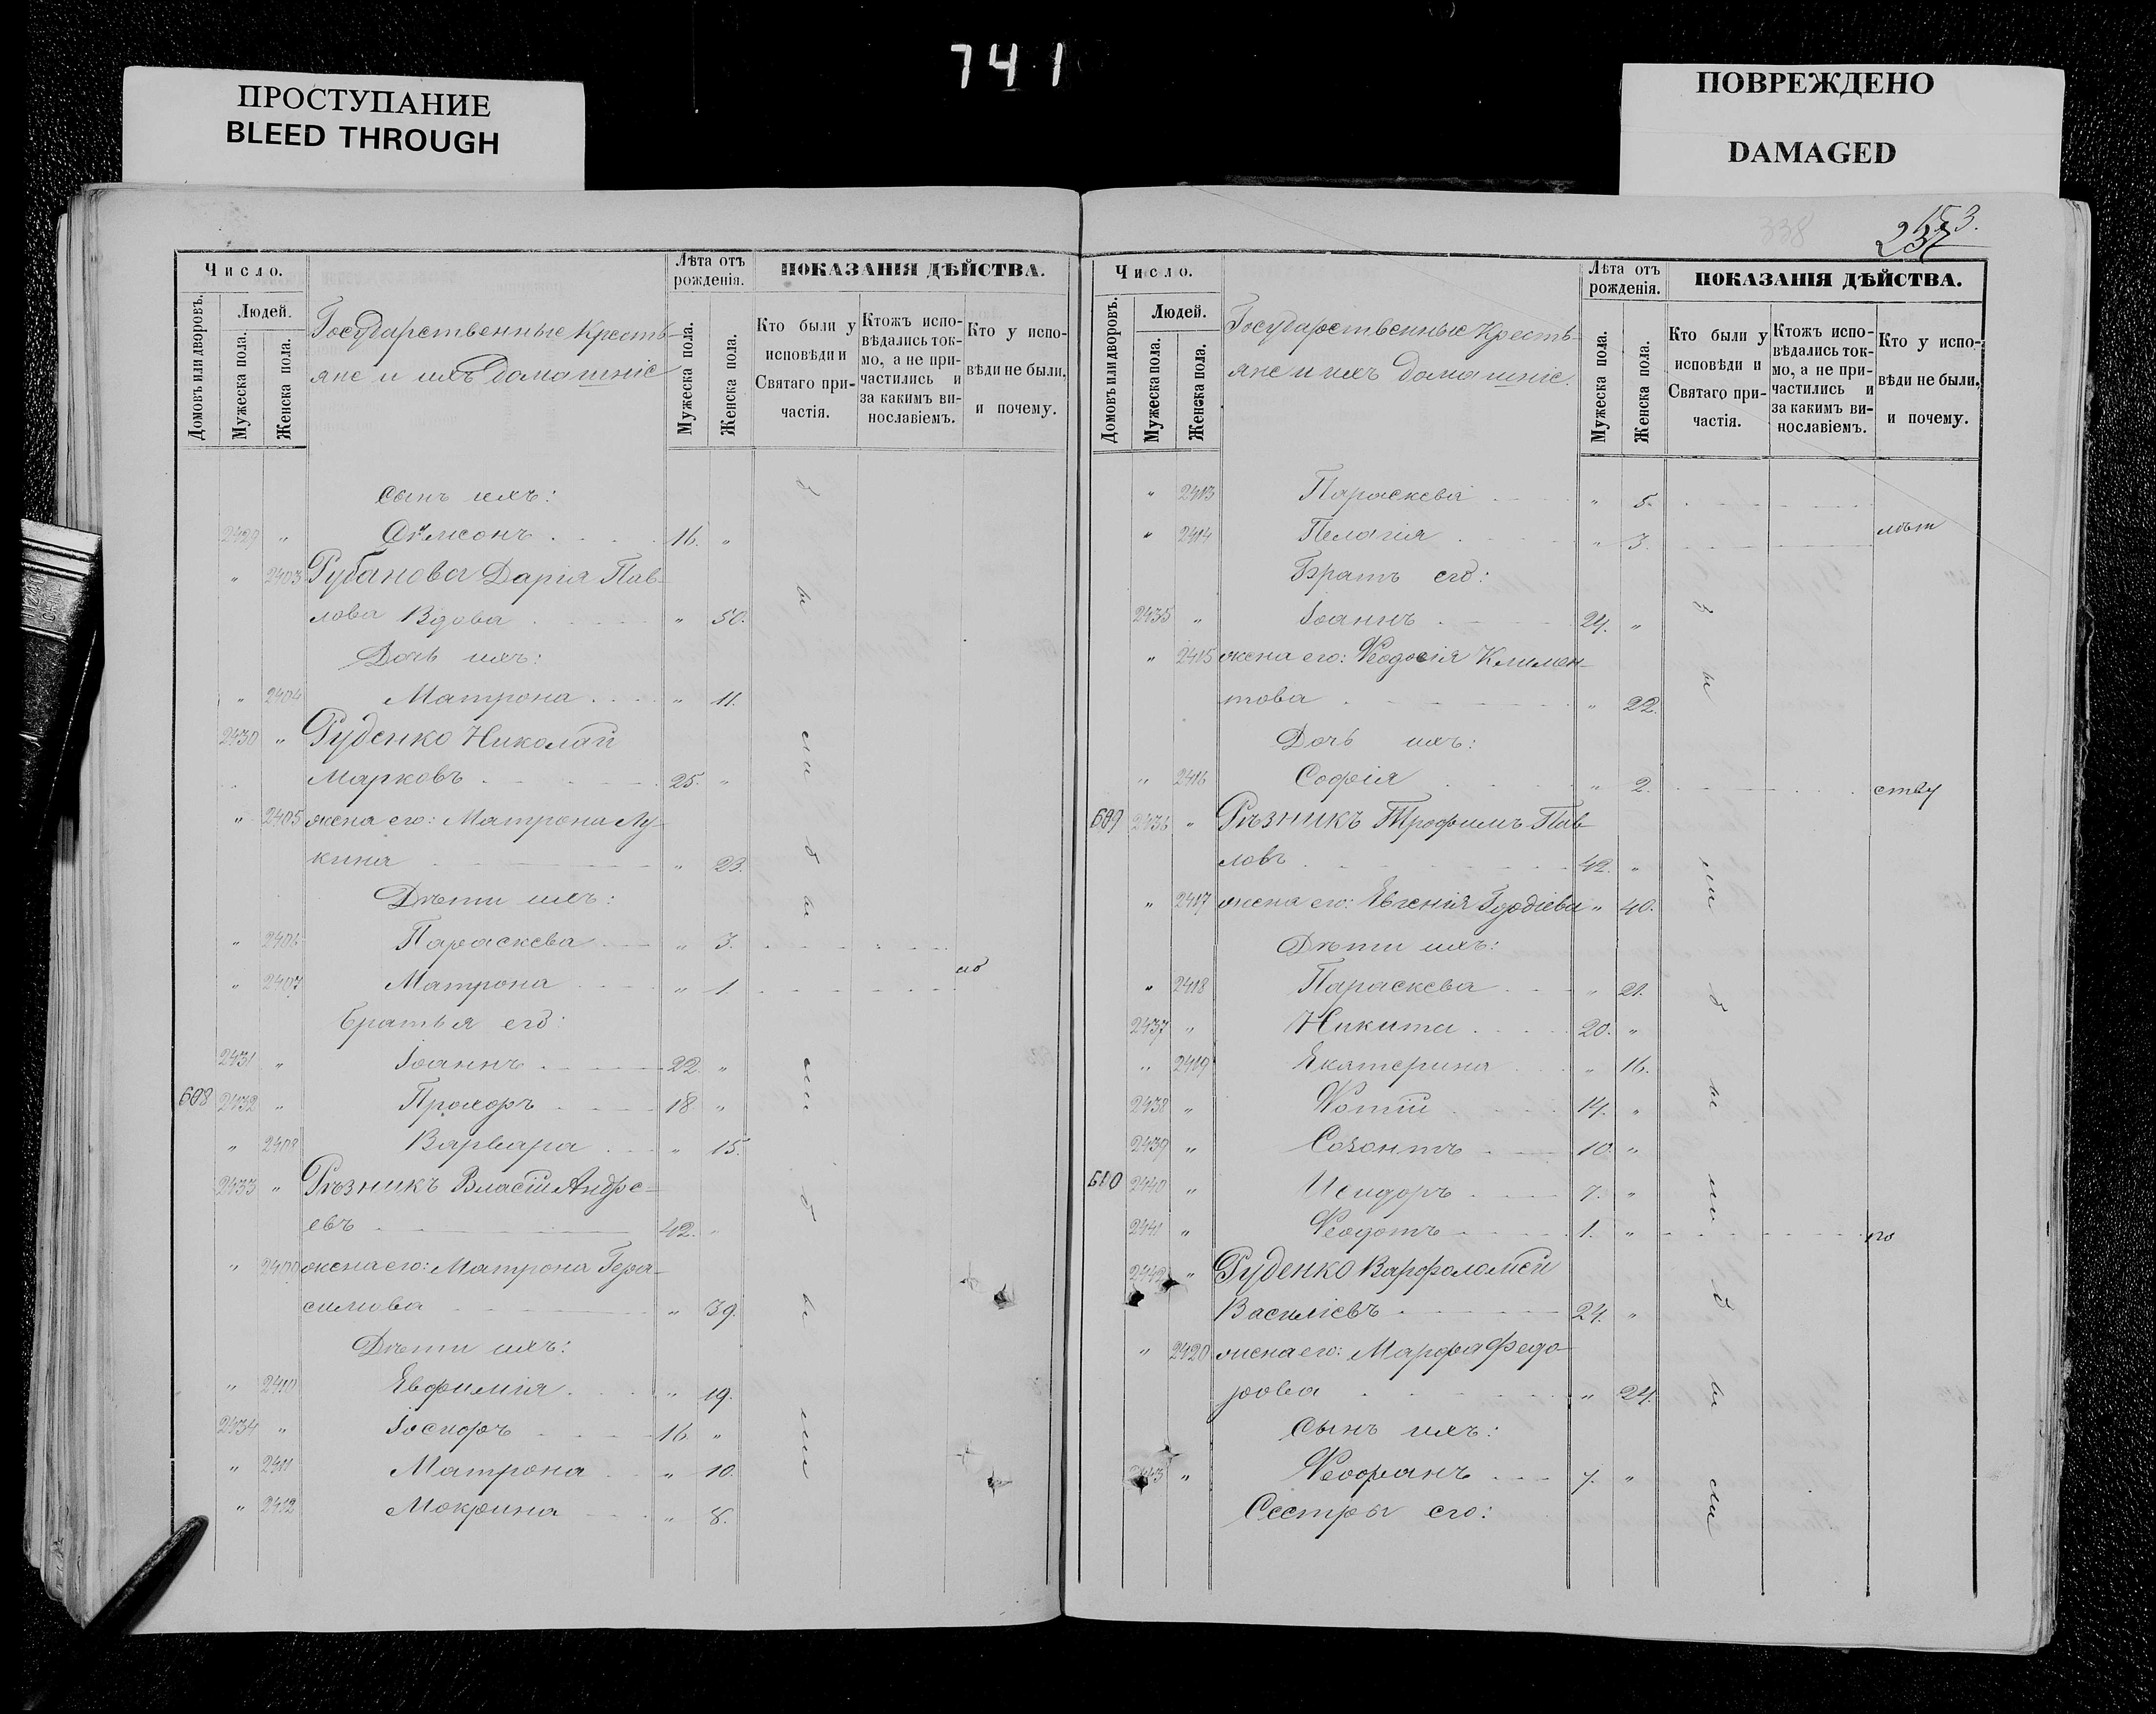 741
ПРОСТУПАНИЕ
BLEED THROUGH
ПОВРЕЖДЕНО
DAMAGED
Число.
Домовъ или дворовъ.
Людей.
Мужеска пола.
Женска пола.
Государственные Кресть-
яне и ихъ домашніе
Лѣта отъ рожденія.
Мужеска пола.
Женска пола.
ПОКАЗАНІЯ ДѢЙСТВА.
Кто были у исповѣди и Святаго при-частія.
Ктожъ испо-вѣдались ток-мо, а не при-частились и за какимъ ви-нославіемъ.
Кто у испо-вѣди не были, и почему.
сынъ ихъ:
2429 " Самсонъ 16. "
" 2403 Рубанова Дарія Пав-
лова Вдова " 50.
Дочь ихъ:
" 2404 Матрона " 11.
2430 " Руденко Николай
Марковъ 25. "
" 2405 жена его: Матрона Лу-
кина " 23.
Дѣти ихъ:
" 2406 Параскева " 3.
" 2407 Матрона " 1
братья его:
2431 " Іоаннъ 22. "
608 2432 " Прохоръ 18 "
" 2408 Варвара " 15.
2433 " Рѣзникъ Власій Андре-
евъ 42. "
" 2409 жена его: Матрона Гера-
симова " 39.
Дѣти ихъ:
" 2410 Евфимія " 19.
2434 " 16. "
" 2411 Матрона " 10.
" 2412 Мокрина " 8.
были были были
338
Число.
Домовъ или дворовъ.
Людей.
Мужеска пола.
Женска пола.
Государственные Кресть-
яне и ихъ домашніе.
Лѣта отъ рожденія.
Мужеска пола.
Женска пола.
ПОКАЗАНІЯ ДѢЙСТВА.
Кто были у исповѣди и Святаго при-частія.
Ктожъ испо-вѣдались ток-мо, а не при-частились и за какимъ ви-нославіемъ.
Кто у испо-вѣди не были, и почему.
" 2413 Параскева " 5.
" 2414 Пелагія " 3.
Братъ его:
2435 " Іоаннъ 24. "
" 2415 жена его: Ѳеодосія Климен-
това " 22.
Дочь ихъ:
" 2416 Софія " 2. ству
609 2436 " Рѣзникъ Трофимъ Пав-
ловъ 42. "
" 2417 жена его: Евгенія Гордіева " 40.
Дѣти ихъ:
" 2418 Параскева " 21.
2437 " Никита 20. "
" 2419 Екатерина " 16.
2438 " Фотій 14. "
2439 " Созонтъ 10. "
610 2440 " Исидоръ 7. "
2441 " Ѳеодотъ 1. " по
2442 " Руденко Варфоломей
Василіевъ 24. "
" 2420 жена его: Марфа Федо-
рова " 24.
Сынъ ихъ:
" Ѳеофанъ "
Сестры его:
были были были